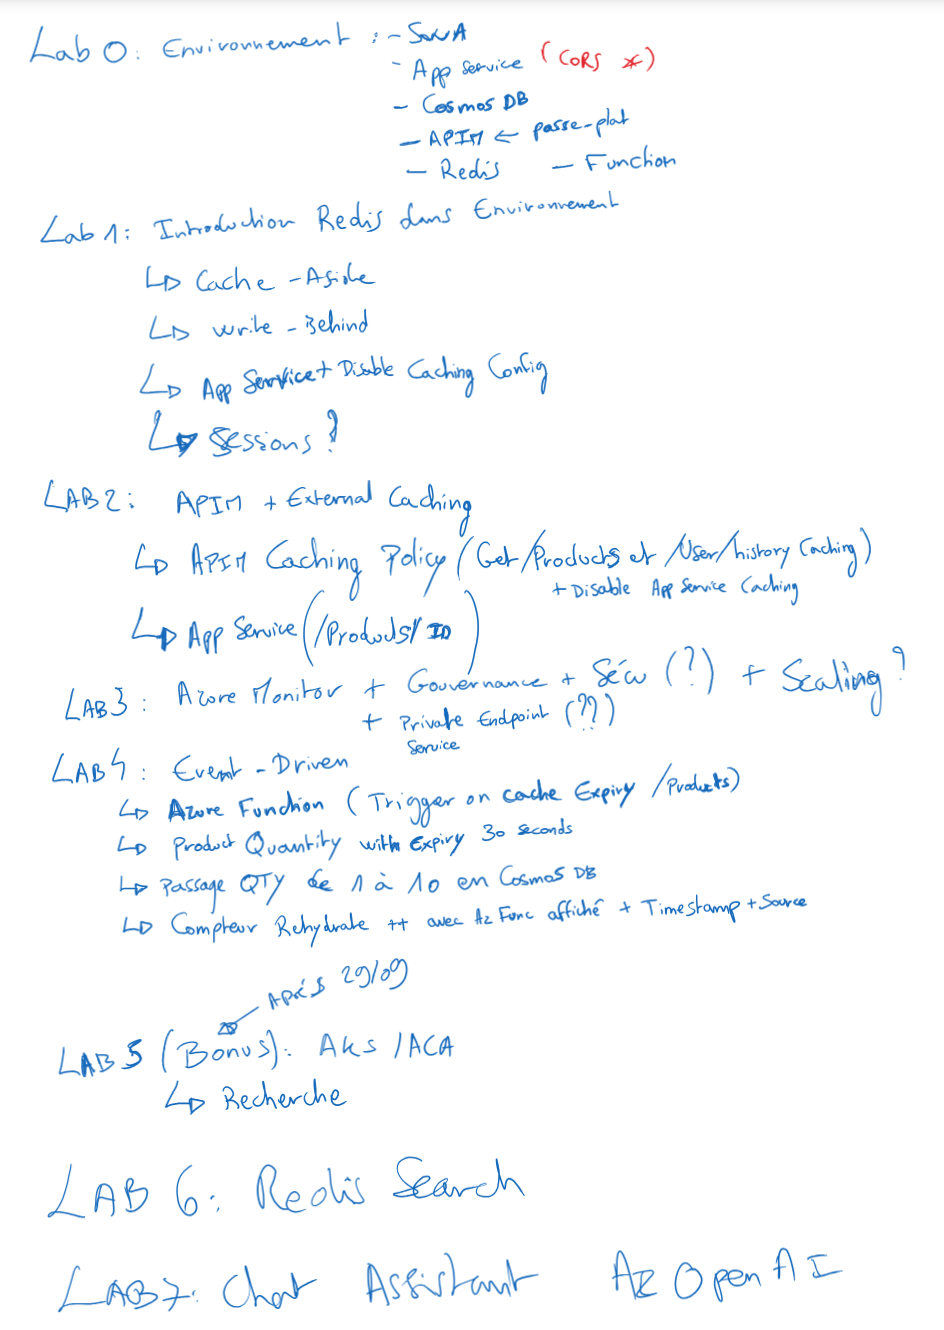 Lab 0: Environnement : - SWA
- App Service (CORS *)
- Cosmos DB
- APIM ← passe-plat
- Redis - Function
Lab 1: Introduction Redis dans Environnement
↳ Cache-Aside
↳ Write-Behind
↳ App Service + Disable Caching Config
↳ Sessions ?
LAB 2: APIM + External Caching
↳ APIM Caching Policy (Get/Products et /User/history Caching)
+ Disable App Service Caching
↳ App Service (/Products/ID)
LAB 3: Azure Monitor + Gouvernance + Sécu (?) + Scaling ?
+ Private Endpoint (??)
Service
LAB 4: Event-Driven
↳ Azure Function (Trigger on cache Expiry /Products)
↳ Product Quantity with Expiry 30 seconds
↳ Passage QTY de 1 à 10 en Cosmos DB
↳ Compteur Rehydrate ++ avec Az Func affiché + Timestamp + Source
APRÉS 29/09
LAB 5 (Bonus): AKS / ACA
↳ Recherche
LAB 6: Redis Search
LAB 7: Chat Assistant Az OpenAI